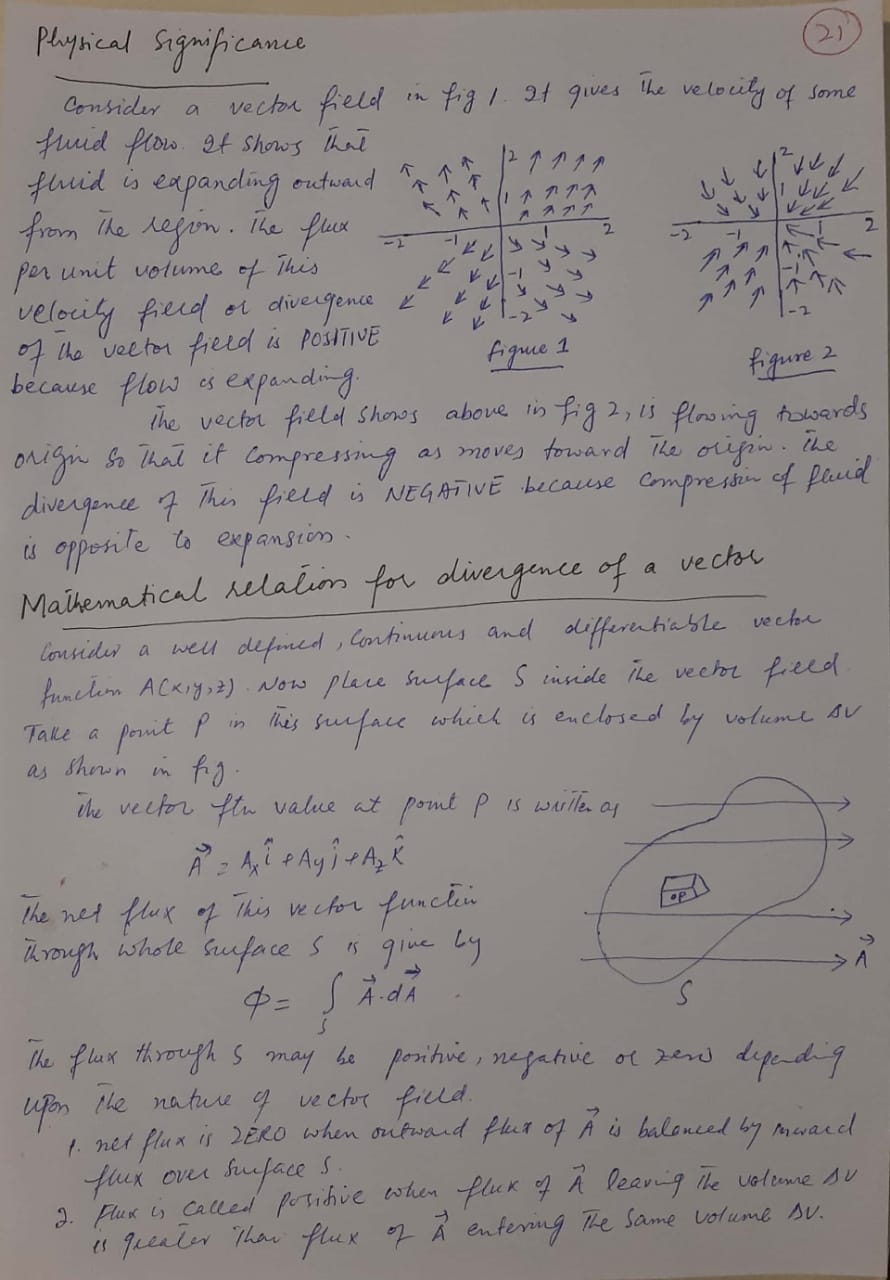 Physical Significance
21
Consider a vector field in fig 1. It gives the velocity of some
fluid flow. It shows that
fluid is expanding outward
from the region. The flux
per unit volume of this
velocity field or divergence
of the vector field is POSITIVE
because flow is expanding.
2
1
-2
-1
1
2
-1
-2
figure 1
2
1
-2
-1
1
2
-1
-2
figure 2
The vector field shows above in fig 2, is flowing towards
origin so that it compressing as moves toward the origin. The
divergence of this field is NEGATIVE because compression of fluid
is opposite to expansion.
Mathematical relation for divergence of a vector
Consider a well defined, continuous and differentiable vector
function A(x,y,z). Now place surface S inside the vector field.
Take a point P in this surface which is enclosed by volume ΔV
as shown in fig.
The vector ftn value at point P is written as
A⃗ = Axî + Ayĵ + Azk̂
The net flux of this vector function
through whole surface S is give by
Φ = ∫S A⃗.dA⃗
oP
A⃗
S
The flux through S may be positive, negative or zero depending
upon the nature of vector field.
1. net flux is ZERO when outward flux of A⃗ is balanced by inward
flux over surface S.
2. Flux is called positive when flux of A⃗ leaving the volume ΔV
is greater than flux of A⃗ entering the same volume ΔV.